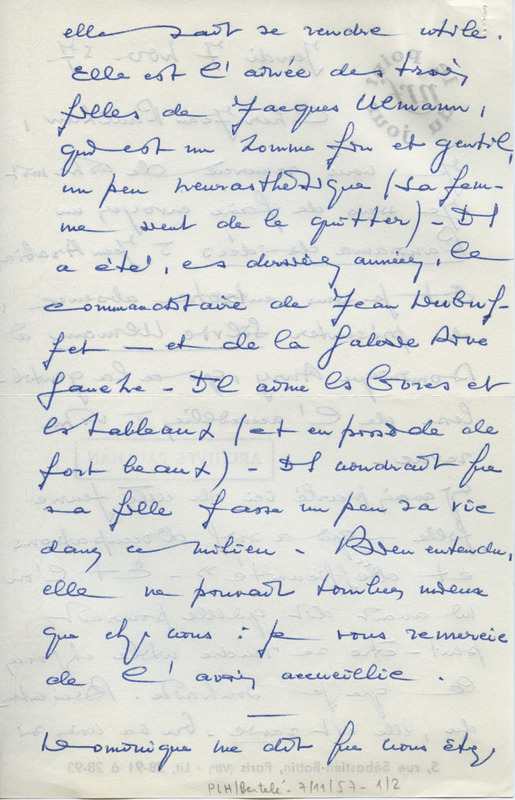 elle sait se rendre utile.
Elle est l'aînée des trois
filles de Jacques Ulmann,
qui est un homme fin et gentil,
un peu neurasthénique (sa fem-
me vient de le quitter) – Il
a été, ces dernières années, le
commanditaire de Jean Dubuf-
fet – et de la Galerie Rive
Gauche – Il aime les livres et
les tableaux (et en possède de
fort beaux) – Il voudrait que
sa fille fasse un peu sa vie
dans ce milieu – Bien entendu,
elle ne pouvait tomber mieux
que chez vous : je vous remercie
de l'avoir accueillie.
Dominique me dit que vous êtes,
PLH/Bertelé - 7/11/57 - 1/2